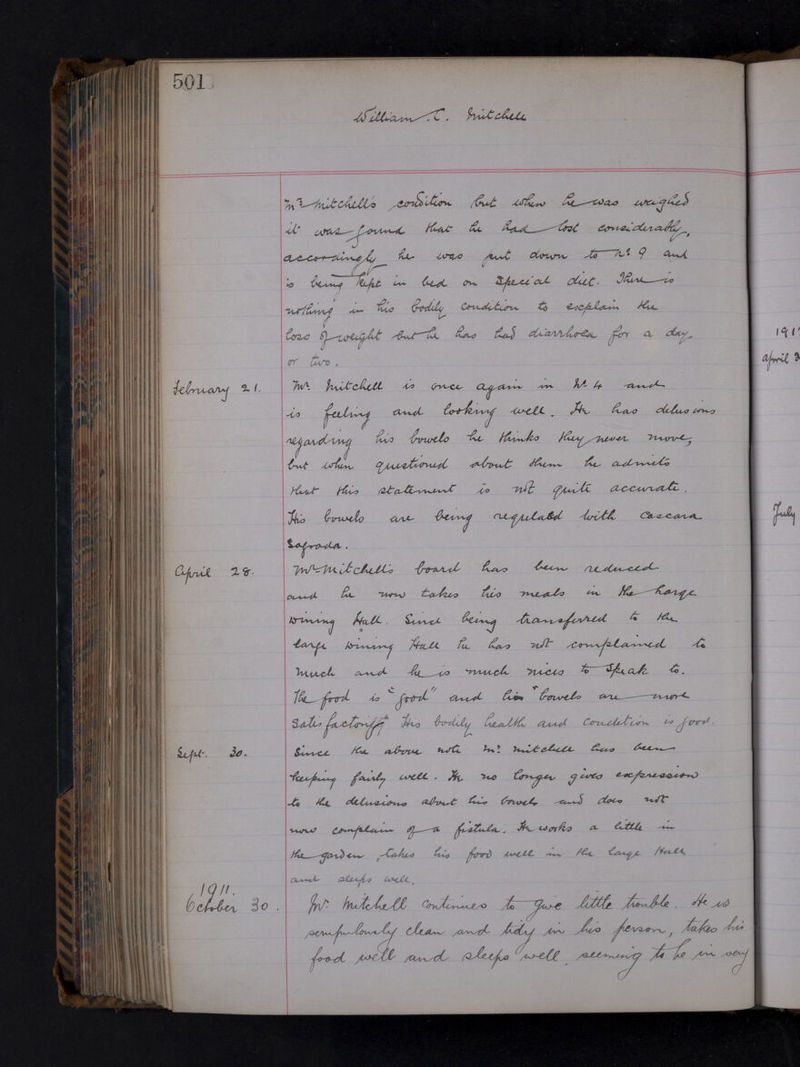 501
William C. Mitchell
Mr Mitchell's condition but when he was weighed
it was found that he had lost considerably,
accordingly he was put down to No 9 and
is being kept in bed on Special diet. There is
nothing in his bodily condition to explain the
loss of weight but he has had diarrhoea for a day
or two.
February 21. Mr Mitchell is once again in No 4 and
is feeling and looking well. He has delusions
regarding his bowels he thinks they never move,
but when questioned about them he admits
that this statement is not quite accurate.
His bowels are being regulated with Cascara
Sagrada.
April 28. Mr Mitchell's board has been reduced
and he now takes his meals in the large
Dining Hall. Since being transferred to the
large Dining Hall he has not complained to
much and he is much nicer to speak to.
The food is "good" and his "bowels are more
satisfactory". His bodily health and condition is good.
Sept. 30. Since the above note Mr Mitchell has been
keeping fairly well. He no longer gives expression
to the delusions about his bowels and does not
now complain of a fistula. He works a little in
the garden, takes his food well in the large Hall
and sleeps well.
1911.
October 30. Mr Mitchell continues to give little trouble. He is
scrupulously clean and tidy in his person, takes his
food well and sleeps well, seeming to be in very
191
April 3
July